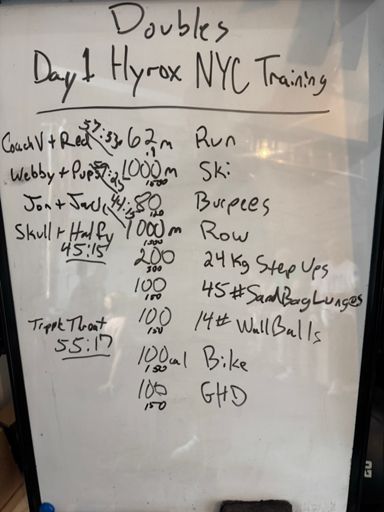 Doubles
Day 1 Hyrox NYC Training
Coach V + Red 57:53 .62 m Run
.9
Webby + Pups 1000 m Ski
1500
Jon + 80 Burpees
120
Skull + Halfy 1000 m Row
45:15 1500
200 24 Kg Step Ups
300
100 45# SandBag Lunges
150
Tripl Threat 100 14# Wall Balls
55:17 150
100 cal Bike
150
100 GHD
150